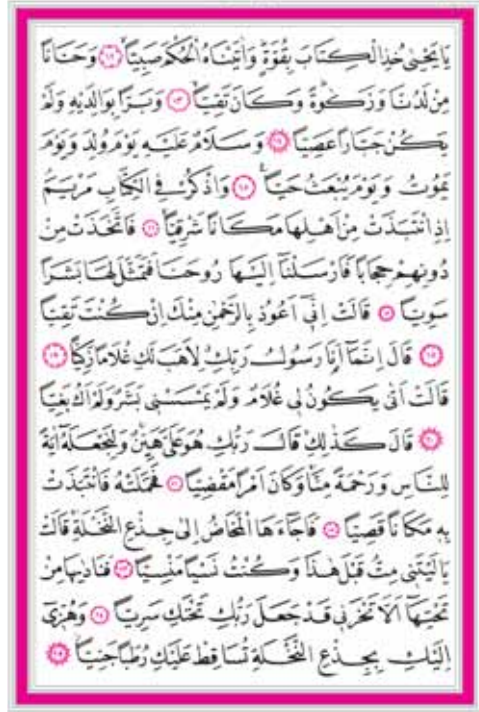 يَا يَحْيٰى خُذِ الْكِتَابَ بِقُوَّةٍۜ وَاٰتَيْنَاهُ الْحُكْمَ صَبِيًّاۙ ﴿١٢﴾ وَحَنَانًا
مِنْ لَدُنَّا وَزَكٰوةًۜ وَكَانَ تَقِيًّاۙ ﴿١٣﴾ وَبَرًّا بِوَالِدَيْهِ وَلَمْ
يَكُنْ جَبَّارًا عَصِيًّا ﴿١٤﴾ وَسَلَامٌ عَلَيْهِ يَوْمَ وُلِدَ وَيَوْمَ
يَمُوتُ وَيَوْمَ يُبْعَثُ حَيًّا۟ ﴿١٥﴾ وَاذْكُرْ فِي الْكِتَابِ مَرْيَمَۢ
اِذِ انْتَبَذَتْ مِنْ اَهْلِهَا مَكَانًا شَرْقِيًّاۙ ﴿١٦﴾ فَاتَّخَذَتْ مِنْ
دُونِهِمْ حِجَابًا فَاَرْسَلْنَٓا اِلَيْهَا رُوحَنَا فَتَمَثَّلَ لَهَا بَشَرًا
سَوِيًّا ﴿١٧﴾ قَالَتْ اِنّ۪ٓي اَعُوذُ بِالرَّحْمٰنِ مِنْكَ اِنْ كُنْتَ تَقِيًّا
﴿١٨﴾ قَالَ اِنَّمَٓا اَنَا۬ رَسُولُ رَبِّكِ لِاَهَبَ لَكِ غُلَامًا زَكِيًّا ﴿١٩﴾
قَالَتْ اَنّٰى يَكُونُ ل۪ي غُلَامٌ وَلَمْ يَمْسَسْن۪ي بَشَرٌ وَلَمْ اَكُ بَغِيًّا
﴿٢٠﴾ قَالَ كَذٰلِكِۚ قَالَ رَبُّكِ هُوَ عَلَيَّ هَيِّنٌۚ وَلِنَجْعَلَهُٓ اٰيَةً
لِلنَّاسِ وَرَحْمَةً مِنَّاۚ وَكَانَ اَمْرًا مَقْضِيًّا ﴿٢١﴾ فَحَمَلَتْهُ فَانْتَبَذَتْ
بِه۪ مَكَانًا قَصِيًّا ﴿٢٢﴾ فَاَجَٓاءَهَا الْمَخَاضُ اِلٰى جِذْعِ النَّخْلَةِۚ قَالَتْ
يَا لَيْتَن۪ي مِتُّ قَبْلَ هٰذَا وَكُنْتُ نَسْيًا مَنْسِيًّا ﴿٢٣﴾ فَنَادٰيهَا مِنْ
تَحْتِهَٓا اَلَّا تَحْزَن۪ي قَدْ جَعَلَ رَبُّكِ تَحْتَكِ سَرِيًّا ﴿٢٤﴾ وَهُزّ۪ٓي
اِلَيْكِ بِجِذْعِ النَّخْلَةِ تُسَاقِطْ عَلَيْكِ رُطَبًا جَنِيًّاۘ ﴿٢٥﴾